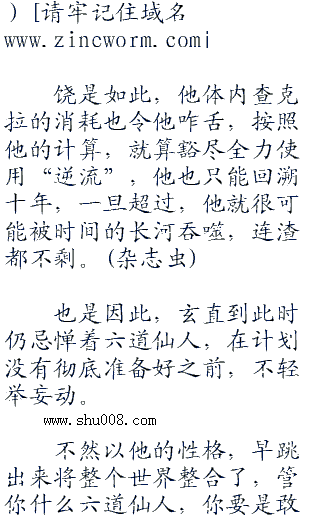 ）[请牢记住域名
www.zincworm.com|
饶是如此，他体内查克
拉的消耗也令他咋舌，按照
他的计算，就算豁尽全力使
用“逆流”，他也只能回溯
十年，一旦超过，他就很可
能被时间的长河吞噬，连渣
都不剩。(杂志虫)
也是因此，玄直到此时
仍忌惮着六道仙人，在计划
没有彻底准备好之前，不轻
举妄动。
www.shu008.com
不然以他的性格，早跳
出来将整个世界整合了，管
你什么六道仙人，你要是敢